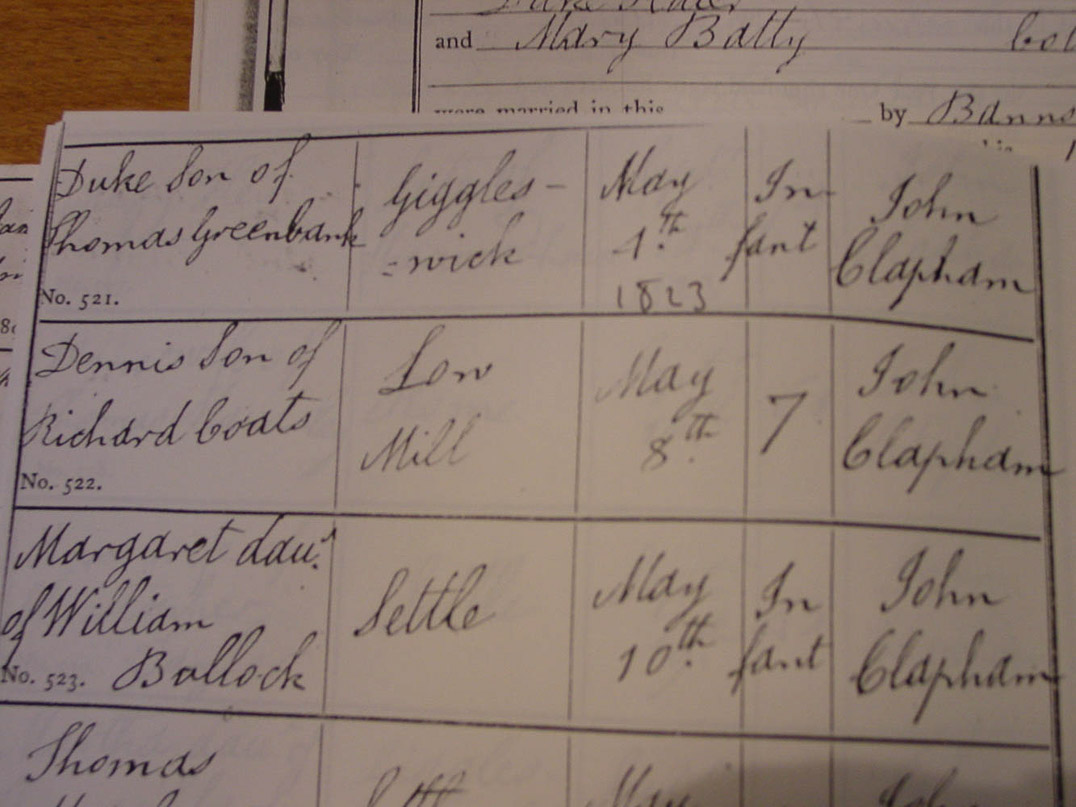 and Mary Batty
were married in this by Banns
Duke Son of
Thomas Greenbank
No. 521.
Giggles-
=wick
May
4.th
1823
In-
fant
John
Clapham
Dennis Son of
Richard Coats
No. 522.
Low
Mill
May
8.th
7
John
Clapham
Margaret dau.r
of William
No. 523. Bullock
Settle
May
10.th
In
fant
John
Clapham
Thomas
May
John